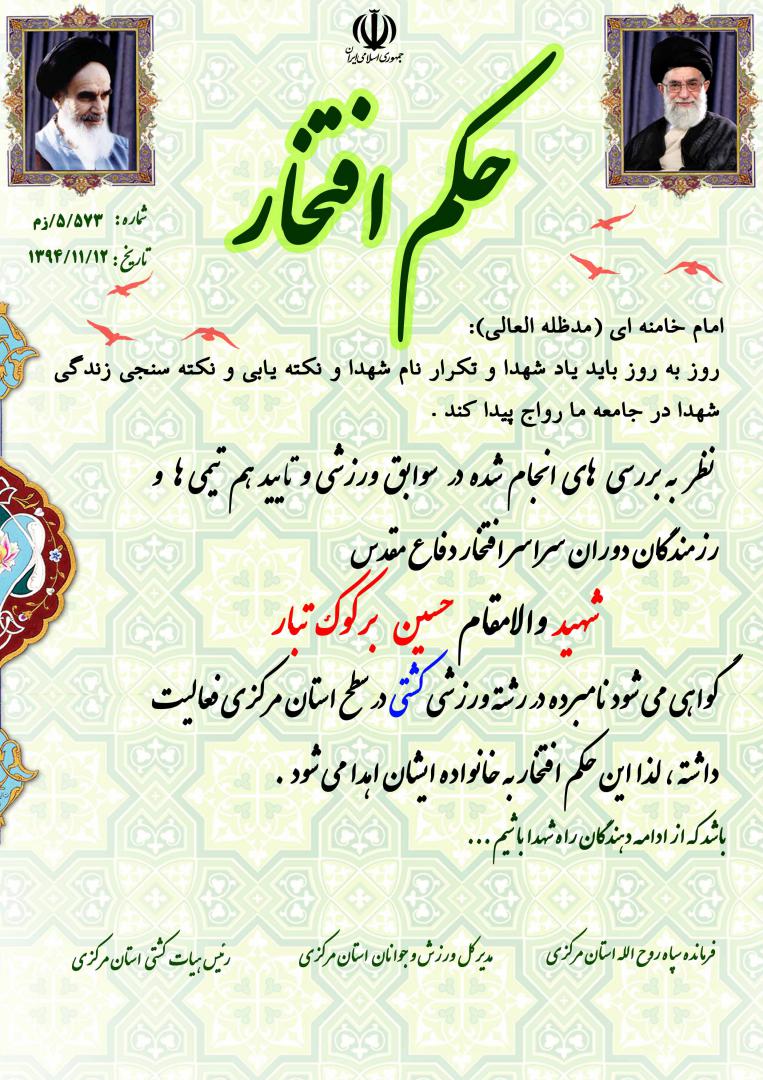 جمهوری اسلامی ایران
حکم افتخار
شماره: ۵/۵۷۳/زم
تاریخ: ۱۳۹۴/۱۱/۱۲
امام خامنه ای (مدظله العالی):
روز به روز باید یاد شهدا و تکرار نام شهدا و نکته یابی و نکته سنجی زندگی
شهدا در جامعه ما رواج پیدا کند .
نظر به بررسی های انجام شده در سوابق ورزشی و تایید هم تیمی ها و
رزمندگان دوران سراسر افتخار دفاع مقدس
شهید والامقام حسین برکوک تبار
گواهی می شود نامبرده در رشته ورزشی کشتی در سطح استان مرکزی فعالیت
داشته ، لذا این حکم افتخار به خانواده ایشان اهدا می شود .
باشد که از ادامه دهندگان راه شهدا باشیم ...
فرمانده سپاه روح الله استان مرکزی
مدیر کل ورزش و جوانان استان مرکزی
رئیس هیات کشتی استان مرکزی